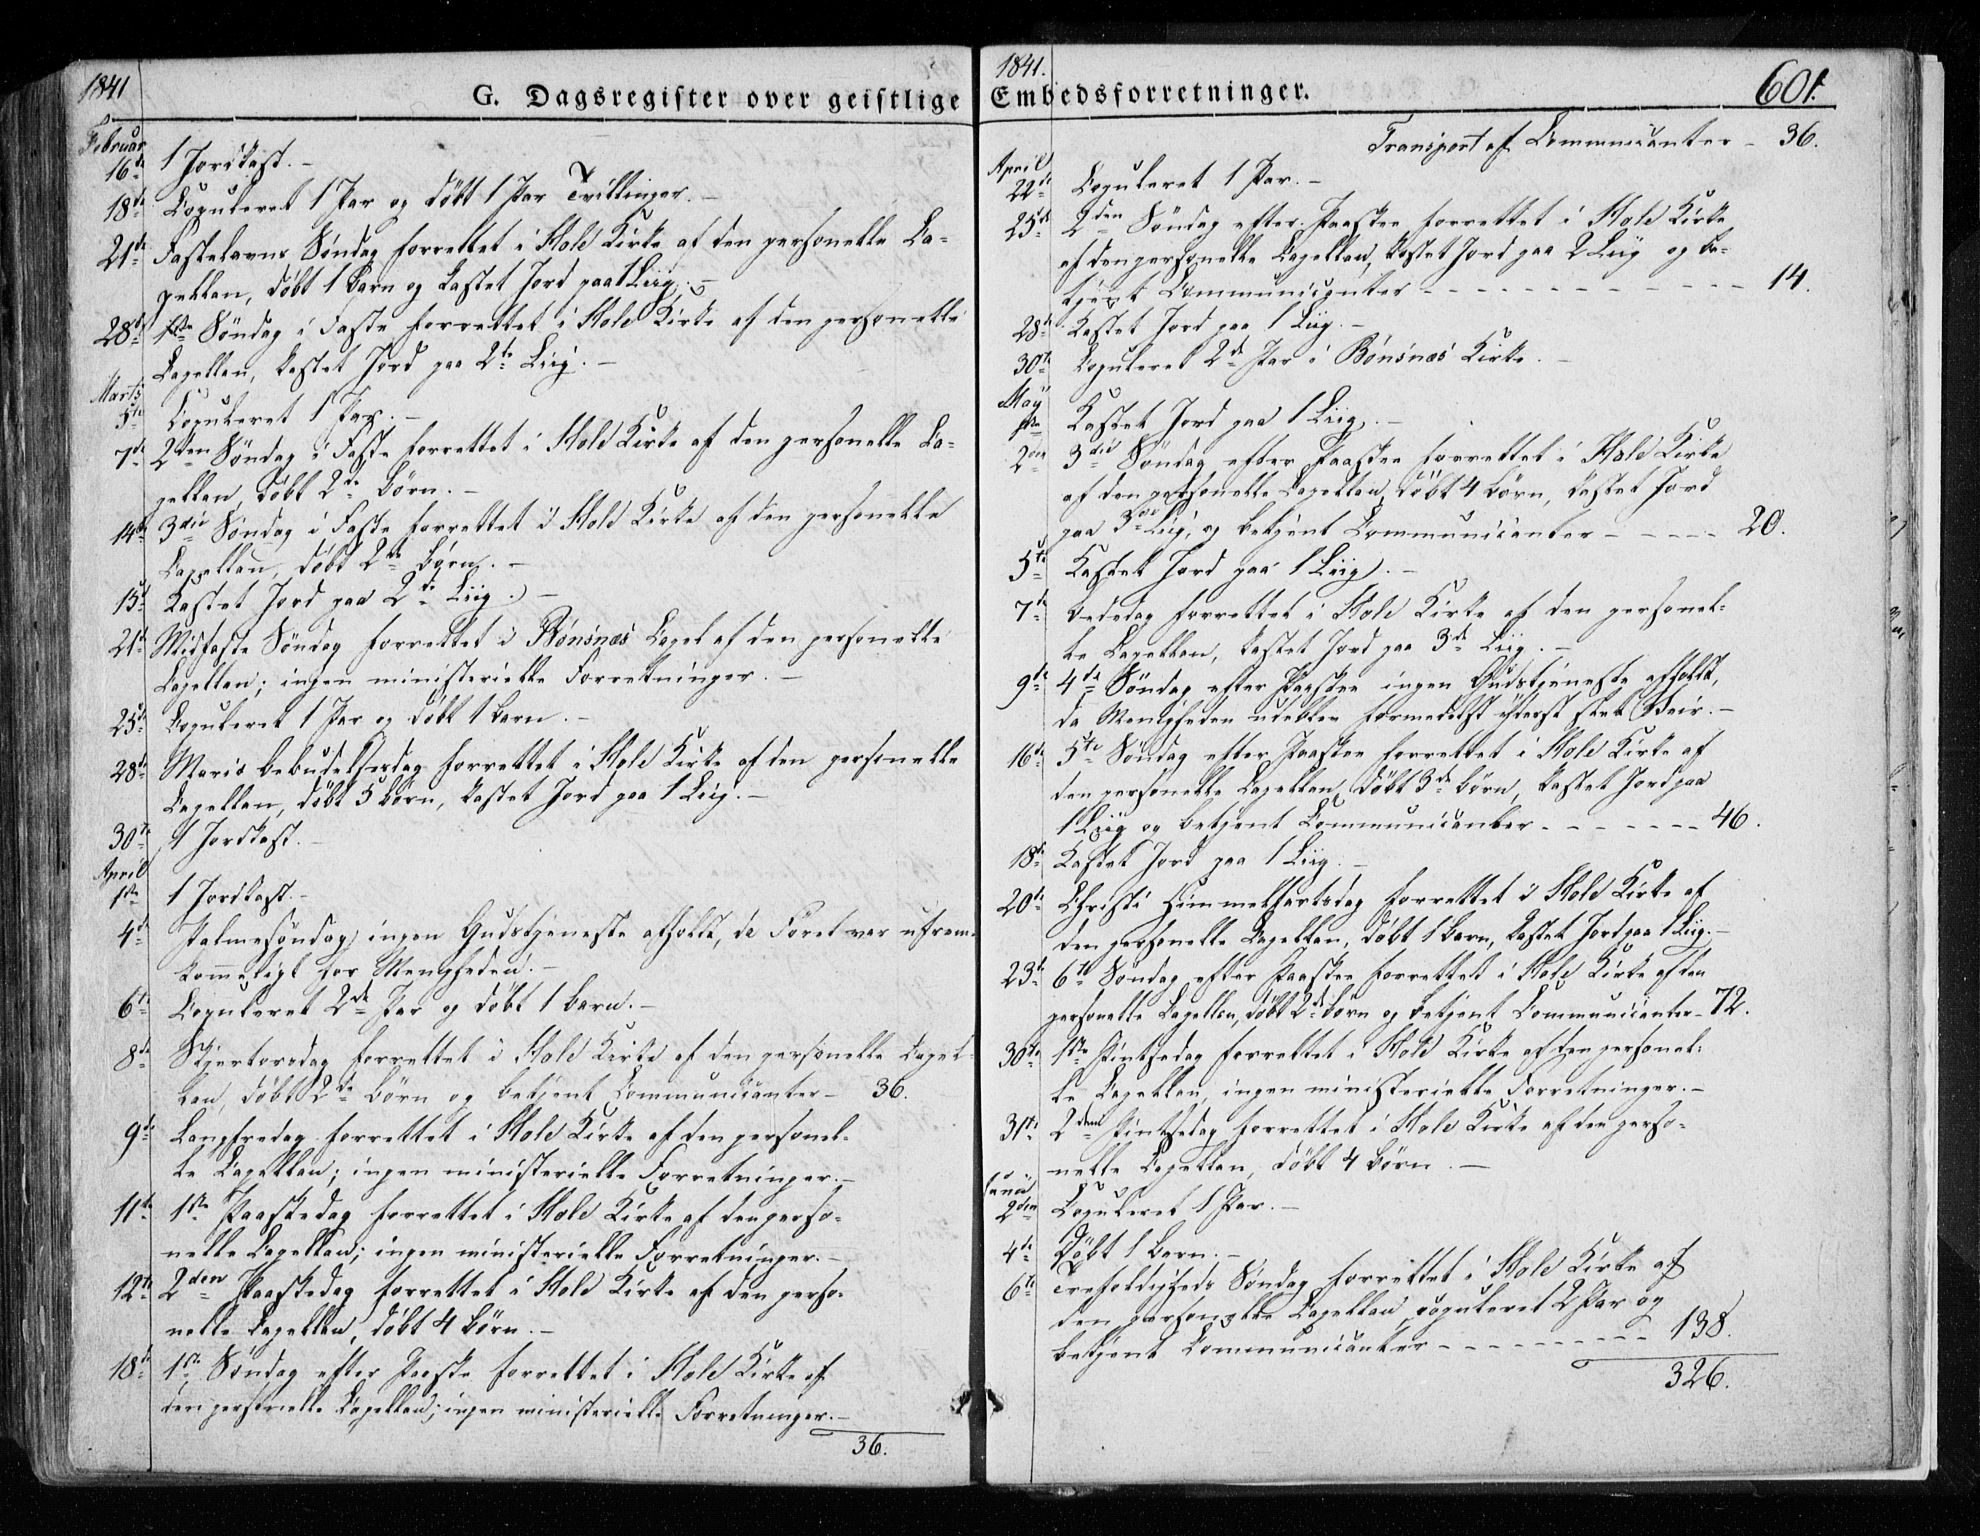 1841
G. Dagsregister over geistlige
Februar
16de 1 Jordkast. -
18de Copuleret 1 Par og döbt 1 Par Tvillinger. -
21de Fastelavns Söndag forrettet i Hole Kirke af den personelle Ca-
pellan, döbt 1 Barn og kastet Jord paa 1 Liig. -
28de 1ste Söndag i Faste forrettet i Hole Kirke af den personelle
Capellan, kastet Jord paa 2de Liig. -
Marts
5te Copuleret 1 Par. -
7de 2den Söndag i Faste forrettet i Hole Kirke af den personelle Ca-
pellan, döbt 2de Börn. -
14de 3die Söndag i Faste forrettet i Hole Kirke af den personelle
Capellan, döbt 2de Börn. -
15de Kastet Jord paa 2de Liig. -
21de Midfaste Söndag forrettet i Bönsnæs Capel af den personelle
Capellan; ingen ministerielle Forretninger. -
25de Copuleret 1 Par og döbt 1 Barn. -
28de Mariæ Bebudelsesdag forrettet i Hole Kirke af den personelle
Capellan, döbt 5 Börn, kastet Jord paa 1 Liig. -
30te 1 Jordkast. -
April
1ste 1 Jordkast. -
4de Palmesöndag ingen Gudstjeneste afholdt, da Föret var ufrem-
kommeligt for Menigheden. -
6te Copuleret 2de Par og döbt 1 Barn. -
8de Skjertorsdag forrettet i Hole Kirke af den personelle Capel-
lan, döbt 2de Börn og betjent Communicanter - 36.
9de Langfredag forrettet i Hole Kirke af den personel-
le Capellan; ingen ministerielle Forretninger. -
11te 1ste Paaskedag forrettet i Hole Kirke af den perso-
nelle Capellan; ingen ministerielle Forretninger. -
12te 2den Paaskedag forrettet i Hole Kirke af den perso-
nelle Capellan, döbt 4 Börn. -
18de 1ste Söndag efter Paaske forrettet i Hole Kirke af
den personelle Capellan; ingen ministerielle Forretninger. -
36.
1841.
Embedsforretninger.
601.
Transport af Communicanter - 36.
April
22de Copuleret 1 Par. -
25de 2den Söndag efter Paaske forrettet i Hole Kirke
af den personelle Capellan, kastet Jord paa 2 Liig og be-
tjent Communicanter - - - - - - - - - - - - 14.
28de Kastet Jord paa 1 Liig. -
30te Copuleret 2de Par i Bönsnæs Kirke. -
May
1ste Kastet Jord paa 1 Liig. -
2den 3die Söndag efter Paaske forrettet i Hole Kirke
af den personelle Capellan, döbt 4 Börn, kastet Jord
paa 3de Liig, og betjent Communicanter - - - - - 20.
5te Kastet Jord paa 1 Liig. -
7de Bededag forrettet i Hole Kirke af den personel-
le Capellan, kastet Jord paa 3de Liig. -
9de 4de Söndag efter Paaske ingen Gudstjeneste afholdt,
da Menigheden udeblev formedelst yderst slet Veir. -
16de 5te Söndag efter Paaske forrettet i Hole Kirke af
den personelle Capellan, döbt 3de Börn, kastet Jord paa
1 Liig og betjent Communicanter - - - - - - - 46.
18de Kastet Jord paa 1 Liig. -
20de Christi Himmelfartsdag forrettet i Hole Kirke af
den personelle Capellan, döbt 1 Barn, kastet Jord paa 1 Liig. -
23de 6te Söndag efter Paaske forrettet i Hole Kirke af den
personelle Capellan, döbt 2de Börn og betjent Communicanter - 72.
30te 1ste Pintsedag forrettet i Hole Kirke af den personel-
le Capellan, ingen ministerielle Forretninger. -
31te 2den Pintsedag forrettet i Hole Kirke af den perso-
nelle Capellan, döbt 4 Börn. -
Junii
2den Copuleret 1 Par. -
4de Döbt 1 Barn. -
6te Trefoldigheds Söndag forrettet i Hole Kirke af
den personelle Capellan, copuleret 2 Par og
betjent Communicanter - - - - - - - - - 138.
326.